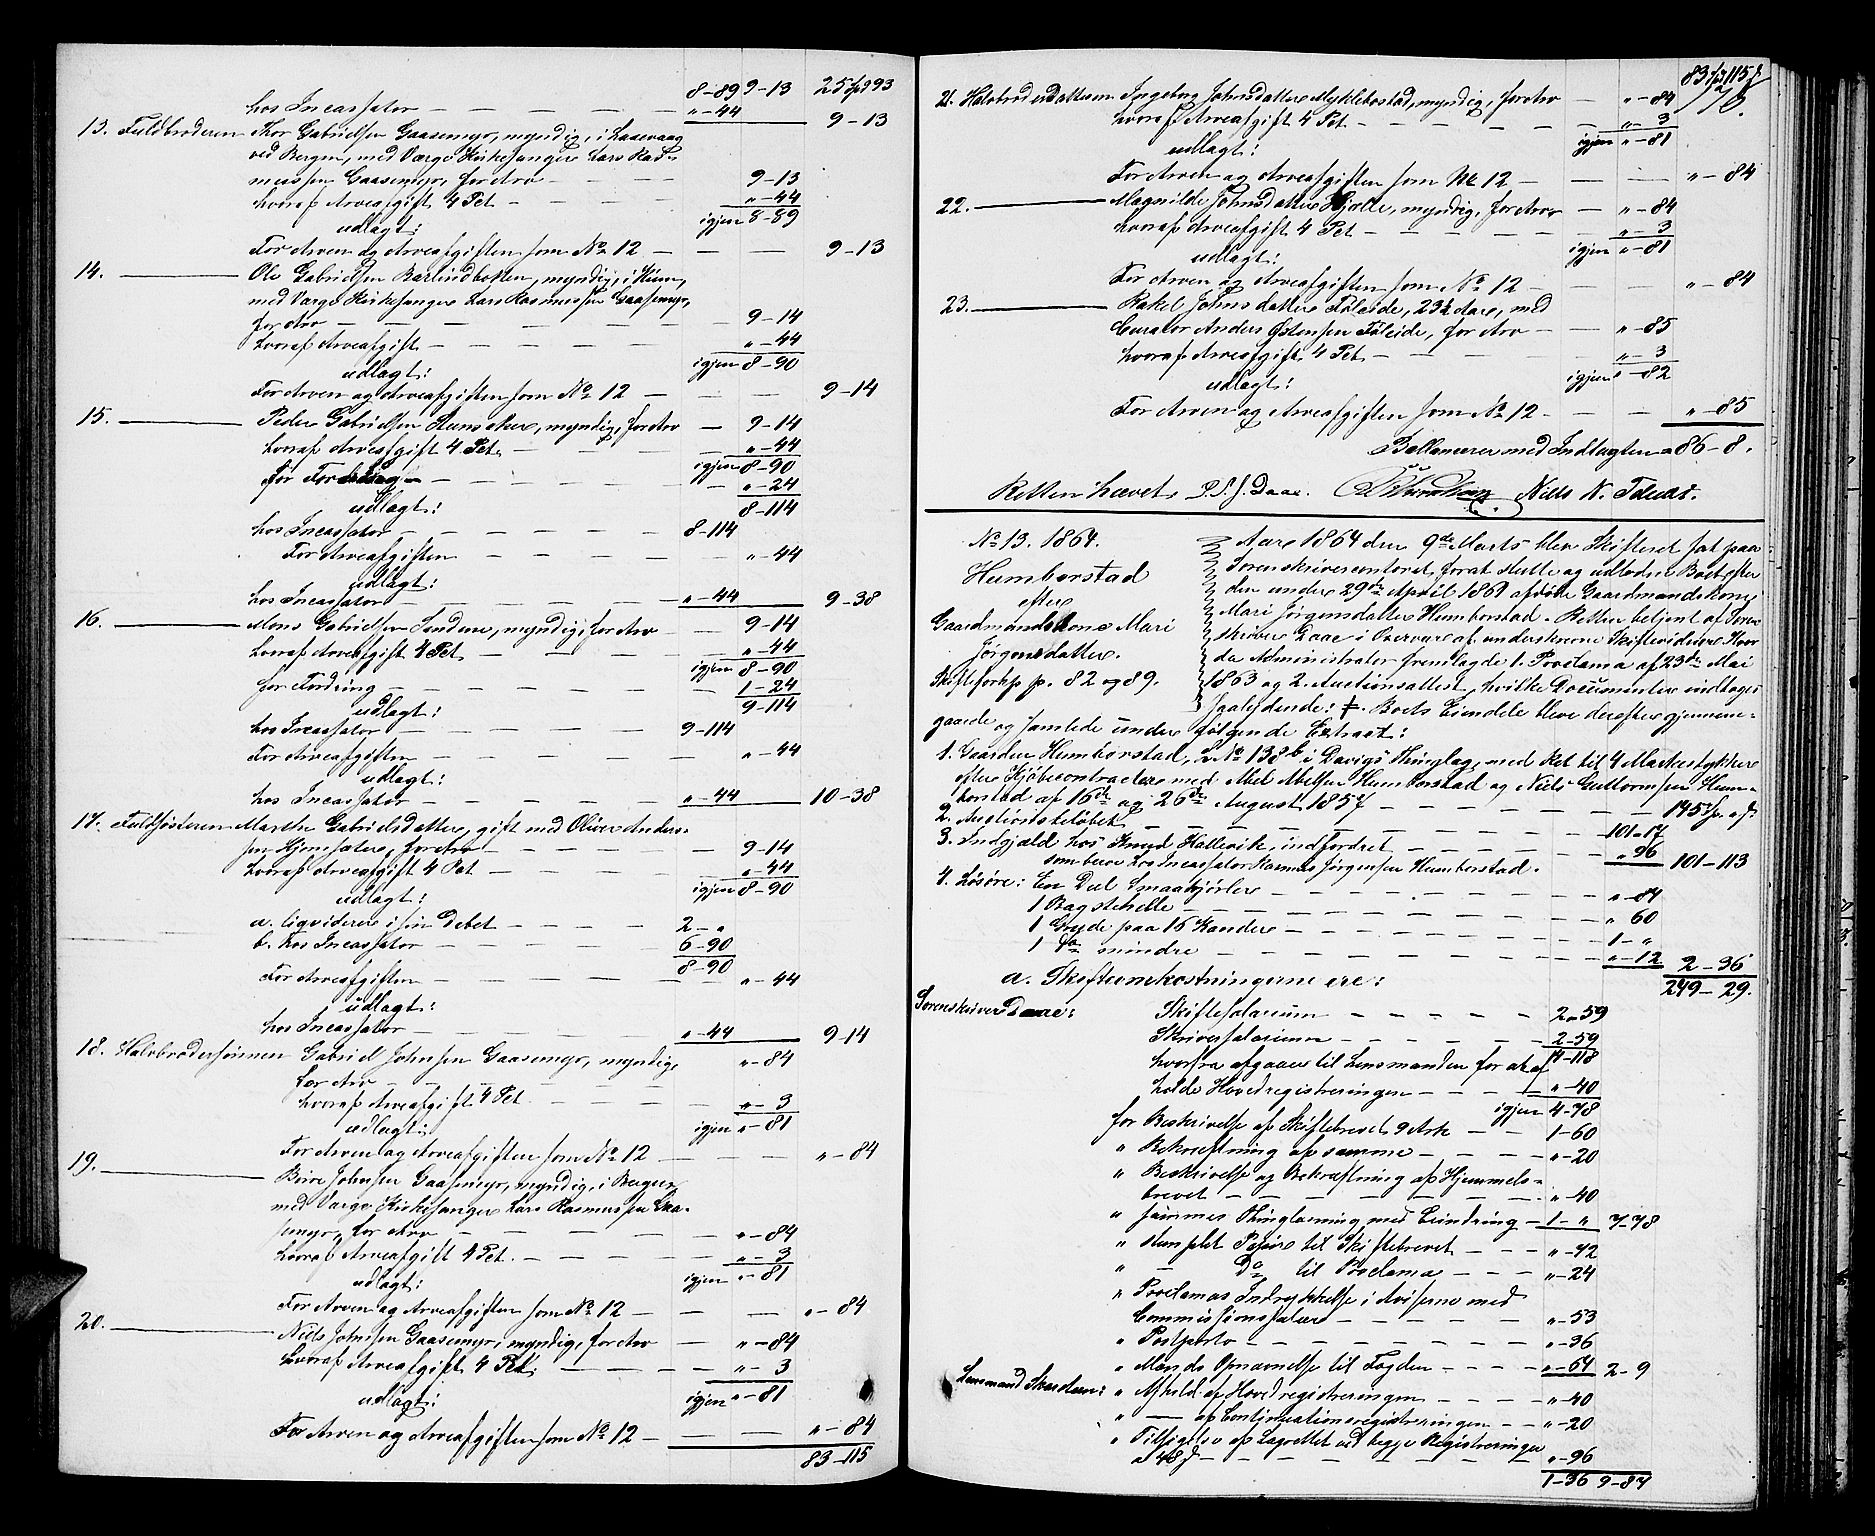 8-89 9-13 25 spd 93
hos Incassator — — — — — „-44
9-13
13. Fuldbroderen Thor Gabrielsen Gaasemyr, myndig, i Laxevaag
ved Bergen, med Værge Kirkesanger Lars Ras-
mussen Gaasemyr, for Arv — — — — 9-13
hvoraf Arveafgift 4 Pct — — — — „-44
igjen 8-89
udlagt:
For Arven og Arveafgiften som No 12 — — — 9-13
14. ——— Ole Gabrielsen Barlindbotten, myndig, i Kinn,
med Værge Kirkesanger Lars Rasmussen Gaasemyr,
for Arv — — — — — — 9-14
hvoraf Arveafgift — — — — — „-44
igjen 8-90
udlagt:
For Arven og Arveafgiften som No 12 — — — 9-14
15. ——— Peder Gabrielsen, myndig, for Arv — 9-14
hvoraf Arveafgift 4 Pct. — — — — „-44
igjen 8-90
for Fordring — — — — — — „-24
8-114
udlagt:
hos Incassator — — — — — 8-114
For Arveafgiften — — — — — „-44
udlagt:
hos Incassator — — — — „-44 9-38
16. ——— Mons Gabrielsen Sandene, myndig, for Arv — 9-14
hvoraf Arveafgift 4 Pct — — — — „-44
igjen 8-90
for Fordring — — — — — — 1-24
9-114
udlagt:
hos Incassator — — — — — 9-114
For Arveafgiften — — — — — „-44
udlagt:
hos Incassator — — — — — „-44 10-38
17. Fuldsøsteren Marthe Gabrielsdatter, gift med Oliver Anders-
sen Hjemsæter, for Arv — — — — 9-14
hvoraf Arveafgift 4 Pct — — — — „-44
igjen 8-90
udlagt:
a. liqviderer i sin Debet — — — 2-„
b. hos Incassator — — — — — 6-90
8-90
For Arveafgiften — — — — — „-44
udlagt:
hos Incassator — — — — — „-44 9-14
18. Halvbrodersønnen Gabriel Johnsen Gaasemyr, myndig,
for Arv — — — — — „-84
hvoraf Arveafgift 4 Pct — — — „-3
igjen „-81
udlagt:
For Arven og Arveafgiften som No 12 — — — „-84
19. ——— Johnsen Gaasemyr, myndig, i Bergen,
med Værge Kirkesanger Lars Rasmussen Gaa-
semyr, for Arv — — — — — „-84
hvoraf Arveafgift 4 Pct. — — — — „-3
igjen „-81
udlagt:
For Arven og Arveafgiften som No 12 — — — „-84
20. ——— Niels Johnsen Gaasemyr, myndig, for Arv — „-84
hvoraf Arveafgift 4 Pct. — — — „-3
igjen „-81
udlagt:
For Arven og Arveafgiften som No 12 — — — „-84
83-115
83 spd 115 ß
21. Halvbroderdatteren Ingeborg Johnsdatter Myklebostad, myndig, for Arv — „-84
hvoraf Arveafgift 4 Pct — — — — — „-3
igjen „-81
udlagt:
For Arven og Arveafgiften som No 12 — — — „-84
22. ——— Magnilde Johnsdatter Hjelle, myndig, for Arv — „-84
hvoraf Arveafgift 4 Pct — — — — — „-3
igjen „-81
udlagt:
For Arven og Arveafgiften som No 12 — — — „-84
23. ——— Rakel Johnsdatter Føleide, 23½ Aar, med
Curator Anders Østensen Føleide, for Arv — — „-85
hvoraf Arveafgift 4 Pct — — — — — „-3
igjen „-82
udlagt:
For Arven og Arveafgiften som No 12 — — — „-85
Ballancerer med Indtægten 86-8.
Retten hævet. P. S. J. Daae. Niels N.
No 13. 1864.
Humborstad
efter
Gaardmandskone Mari
Jørgensdatter.
Skifteforhp p. 82 og 89.
Aar 1864 den 9de Marts blev Skifteret sat paa
Sorenskrivercontoret for at slutte og udlodne Boet efter
den under 29de April 1861 afdøde Gaardmandskone
Mari Jørgensdatter Humborstad. Retten betjent af Soren-
skriver Daae i Overvær af underskrevne Skiftevidner. Hvor-
da Administrator fremlagde 1. Proclama af 23de Mai
1863 og 2. Auctionsattest, hvilke Documenter indtages
saalydende: ‡. Boets Eiendele bleve derefter gjennem-
gaaede og samlede under følgende Extract:
1. Gaarden Humborstad, L No 138 b i Davigs Thinglag, med Ret til 4 Markestykker
efter Kjøbecontracter med Abel Abelsen Humborstad og Niels Guttormsen Hum-
borstad af 16de og 26de August 1857 — — — — 145 sp. „ ß
2. Auctionsbeløbet — — — — — — 101-17
3. Indgjæld hos Knud Hallevik, indfordret — — — — „ 96
som beror hos Incassator Rasmus Jørgensen Humborstad. 101-113
4. Løsøre: En Deel Smaakjørler — — — — — „-84
1 Bagstehelle — — — — — — „ 60
1 Gryde paa 16 Kander — — — — — 1-„
1 do mindre — — — — — — „-12 2-36
249-29.
a. Skifteomkostningerne ere:
Sorenskriver Daae: Skiftesalarium — — — — 2-59
Skriversalarium — — — — 2-59
4-118
hvorfra afgaaer til Lensmanden for at af-
holde Hovedregistreringen — — — „-40
igjen 4-78
for Beskrivelse af Skiftebrevet 9 Ark — — 1-60
„ Bekræftning af samme — — — — „-20
„ Beskrivelse og Bekræftning af Hjemmels-
brevet — — — — — — „-40
„ sammes Thinglæsning med Erindring — 1-„ 7-78
„ stemplet Papir til Skiftebrevet — — — „-42
„ — Do til Proclama — — — „-24
„ Proclamas Indrykkelse i Aviserne med
Commissionssalær — — — — „-53
„ Postporto — — — — — — „-36
„ Mænds Opnævnelse til Fogden — — — „-54 2-9
Lensmand: „ Afhold af Hovedregistreringen — — — „-40
„ — af Continuationsregistreringen — — „-20
„ Tilsigelse af Lagrettet ved begge Registreringer
a 48 ß — — — — — — „-96
1-36 9-87